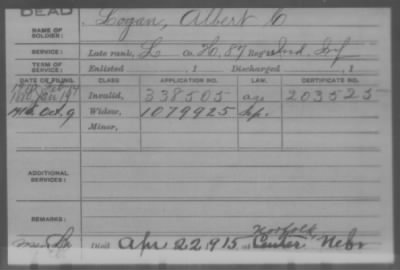 DEAD
NAME OF SOLDIER: Logan, Albert C
SERVICE: Late rank, L Co. H, 87 Reg't Ind. Inf
TERM OF SERVICE: Enlisted , 1 Discharged , 1
DATE OF FILING. CLASS APPLICATION NO. CERTIFICATE NO.
Invalid, 338505 age 203525
1915 Oct. 9 Widow, 1079925 hp.
Minor,
ADDITIONAL SERVICES:
REMARKS:
Died Apr 22 1915 Norfolk Center Nebr